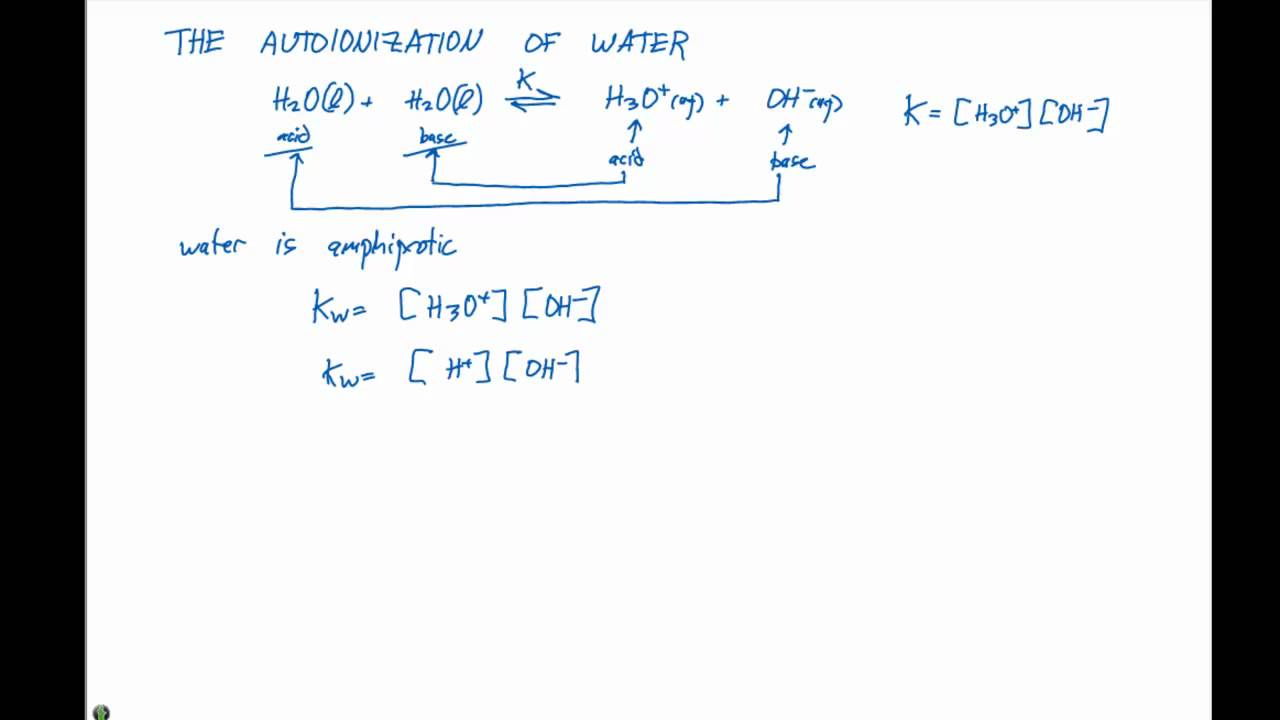 THE AUTOIONIZATION OF WATER
H₂O(l) + H₂O(l) K ⇌ H₃O⁺(aq) + OH⁻(aq) K = [H₃O⁺][OH⁻]
acid base acid base
water is amphiprotic
Kw = [H₃O⁺][OH⁻]
Kw = [H⁺][OH⁻]